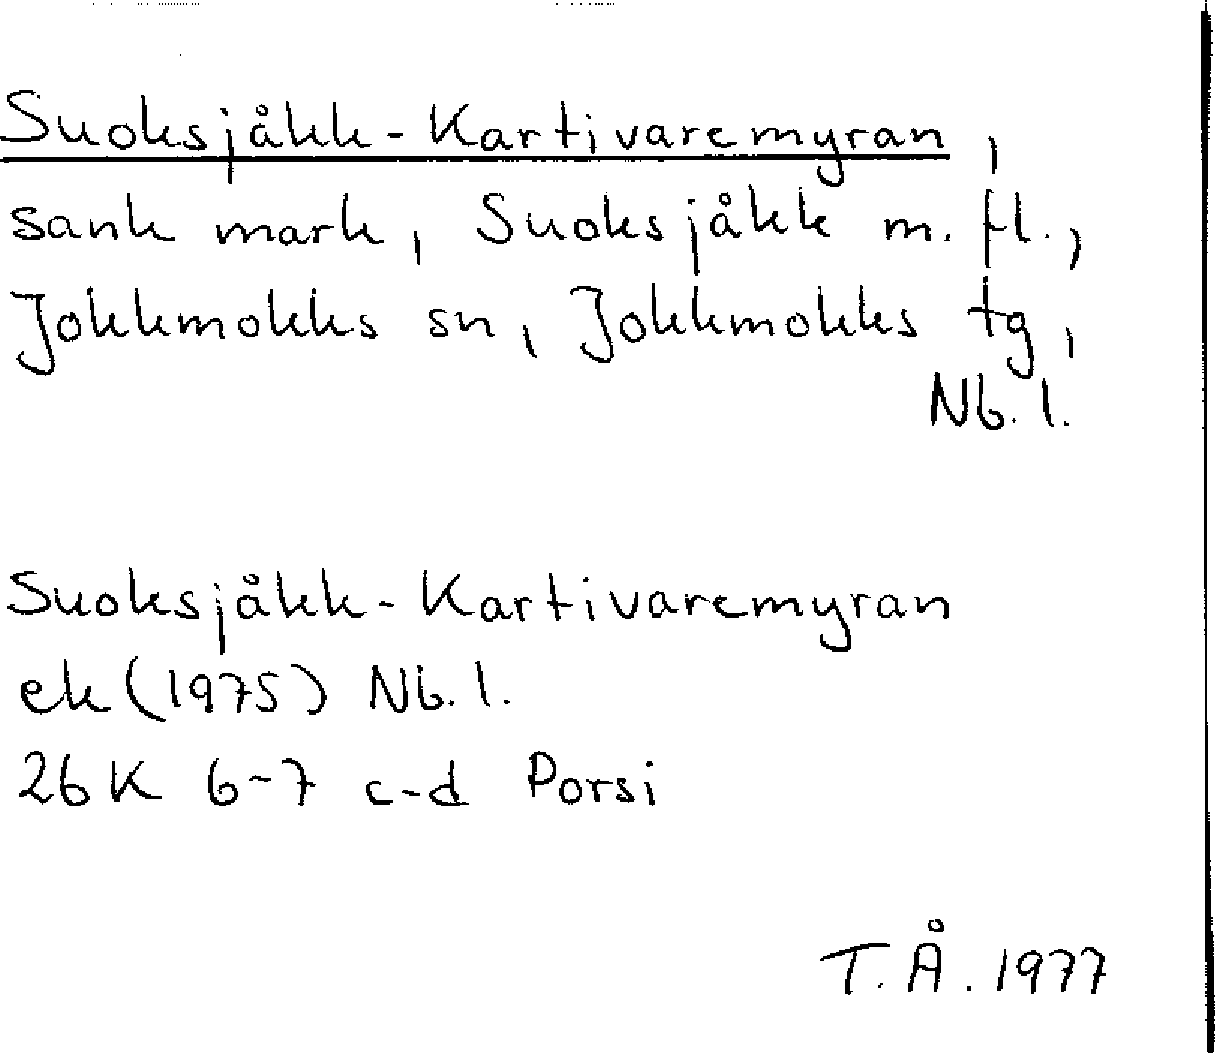 Suoksjåkk-Kartivaremyran,
sank mark, Suoksjåkk m. fl.,
Jokkmokks sn, Jokkmokks tg,
Nb. l.
Suoksjåkk-Kartivaremyran
ek (1975) Nb. l.
26K 6-7 c-d Porsi
T. Å. 1977